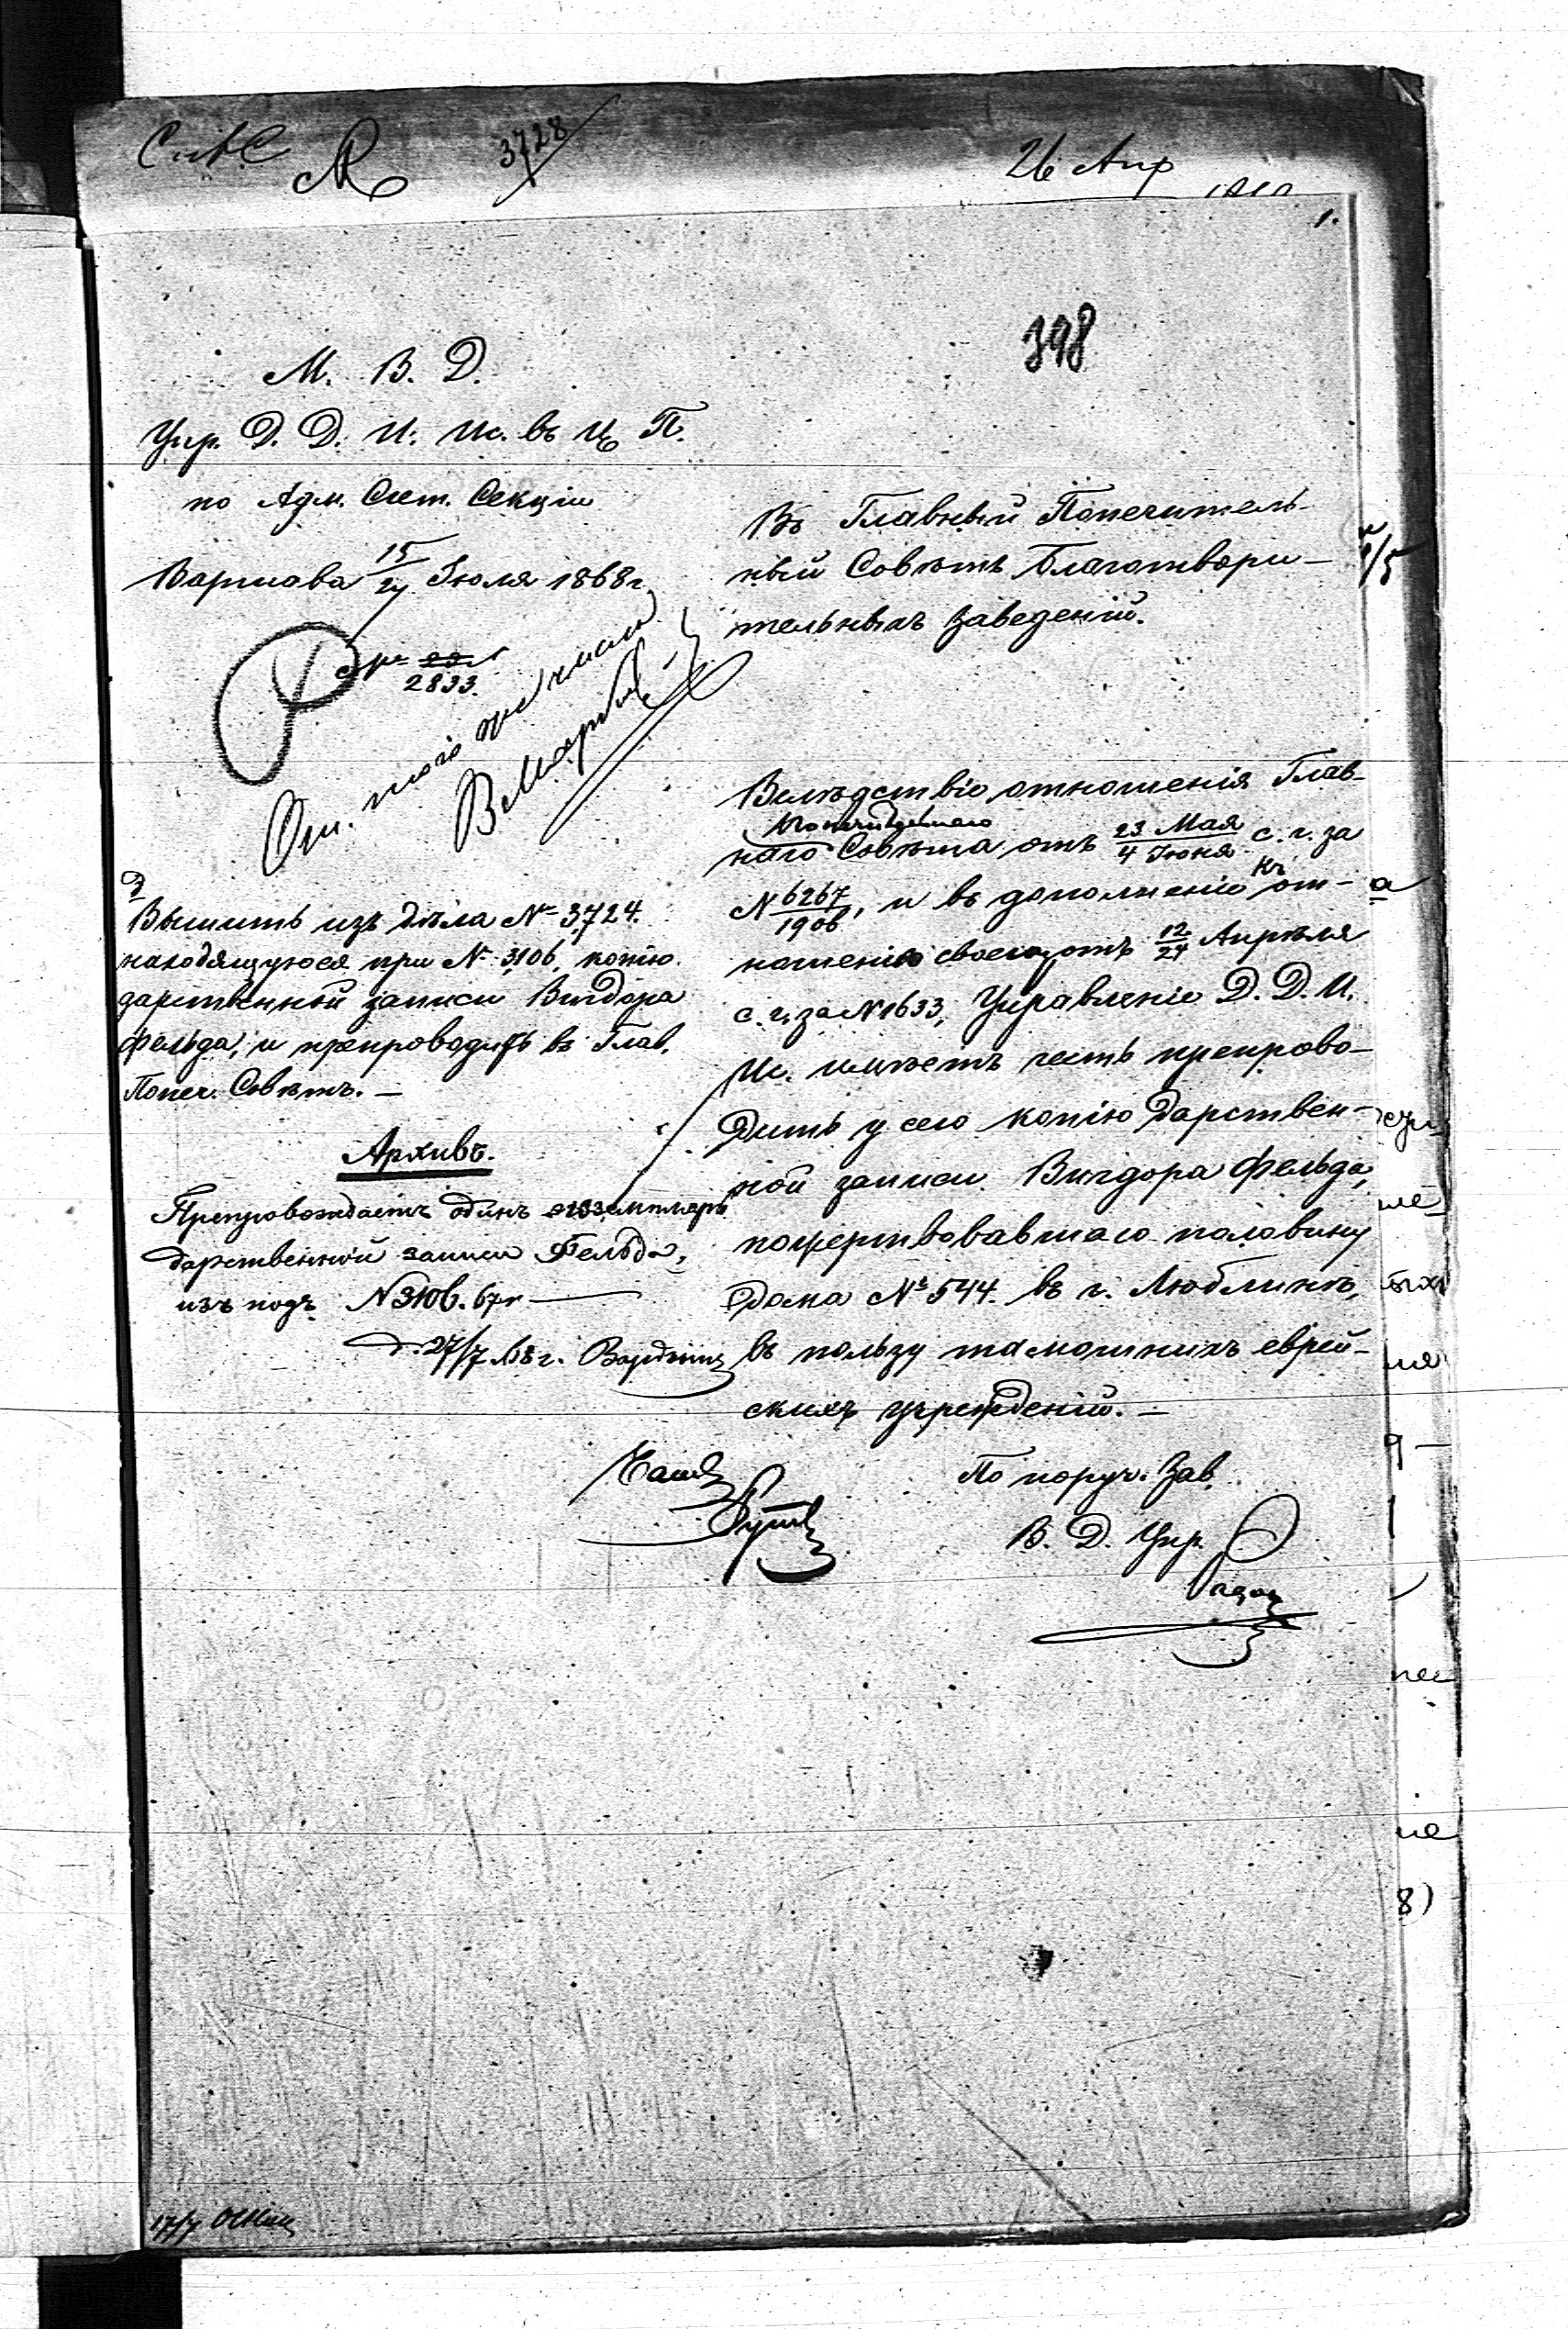 3728
26 Апр
1.
398
М. В. Д.
Упр. Д. Д. И. Ис. въ Ц. П.
по Адм. Счет. Секціи
Варшава 15/27 Іюля 1868 г.
№
2833.
От. того же числа
Въ Главный Попечитель-
ный Совѣтъ Благотвори-
тельныхъ Заведеній.
Вслѣдствіе отношенія Глав-
Попечительнаго
наго Совѣта отъ 23 Мая/4 Іюня с. г. за
№ 6267/1906, и въ дополненіе къ от-
ношенію своему отъ 12/24 Апрѣля
с. г. за № 1633, Управленіе Д. Д. И.
Ис. имѣетъ честь препрово-
дить у сего копію дарствен-
ной записи Вигдора Фельда,
пожертвовавшаго половину
дома № 544. въ г. Люблинѣ,
въ пользу тамошнихъ еврей-
скихъ учрежденій. —
По поруч. Зав.
В. Д. Упр.
Вышить изъ дѣла № 3724.
находящуюся при № 3106, копію
дарственной записи Вигдора
Фельда, и препроводить въ Глав.
Попеч. Совѣтъ. —
Архивъ.
Препровождаетъ одинъ экземпляръ
дарственной записи Фельда,
изъ подъ № 3106. 67 г —
27/7 68 г.
17/7